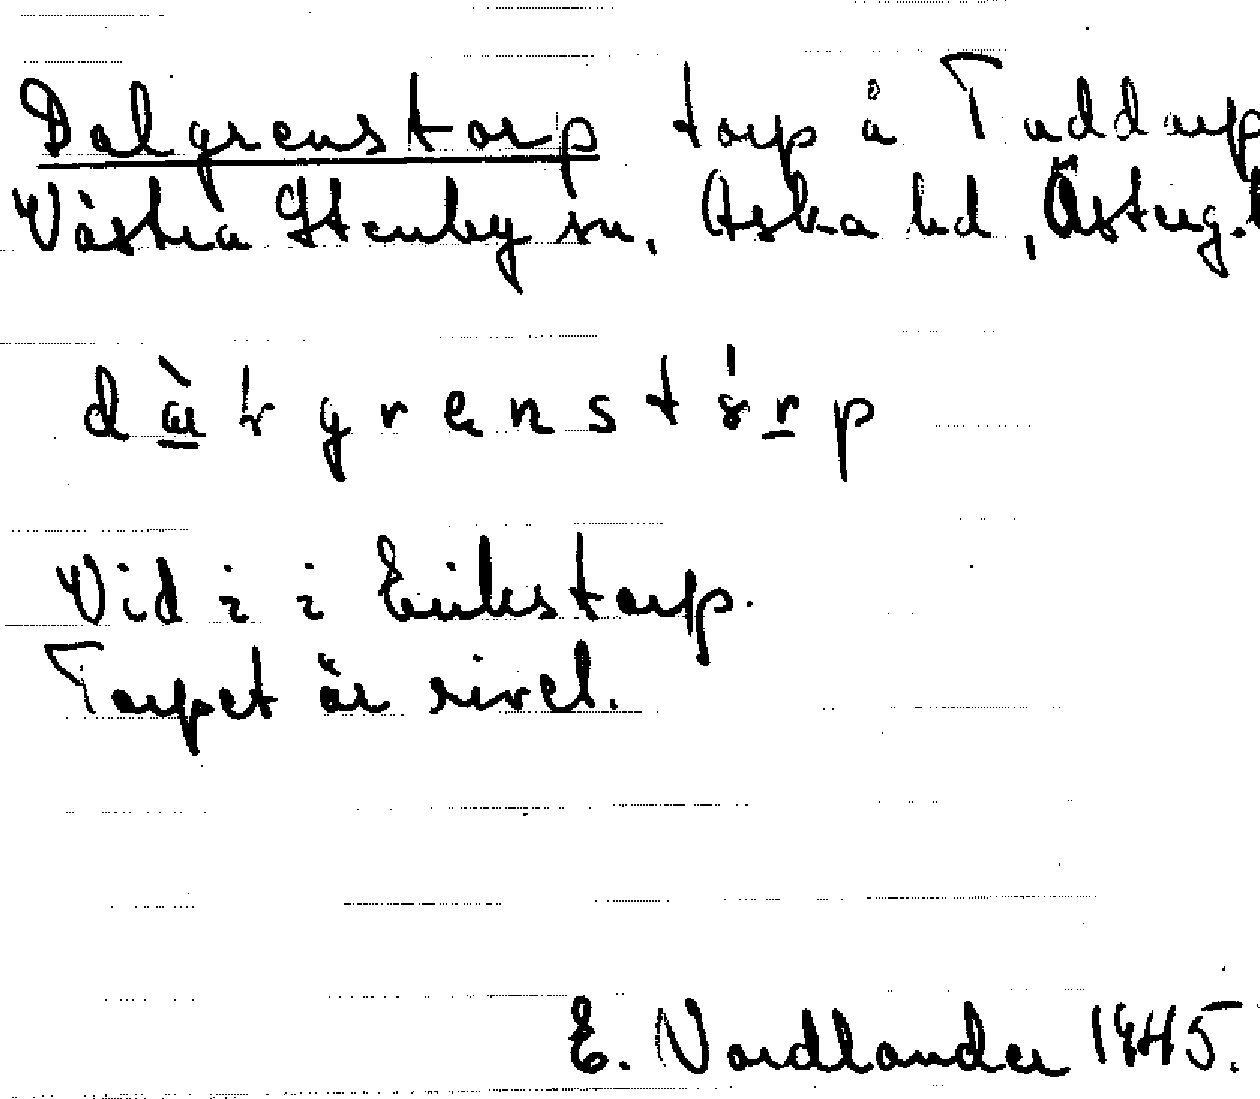 Dalgrenstorp torp å Tuddarp
Västra Stenby sn, Aska hd, Österg.
Vid i i Erikstorp.
Torpet är rivet.
E. Nordlander 1945.